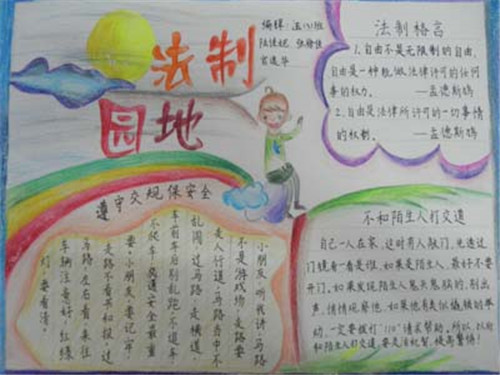 法制
园地
编辑:
法制格言
1.自由不是无限制的自由,
自由是一种能做法律许可的任何
事的权力。 —孟德斯鸠
2.自由是法律所许可的一切事情
的权制。 —孟德斯鸠
遵守交规保安全
小朋友听我讲:马路
不是游戏场,走路要
走人行道;马路当中不
乱闯,过马路,走横道,
车前车后别乱跑。不追车,
不爬车,交通安全最重
要。小朋友,要记牢:
走路不看书和报;过
马路,左右看,来往
车辆注意好;红绿
灯,要看清。
不和陌生人打交道
自己一人在家,这时有人敲门,先透过
门镜看一看是谁,如果是陌生人,最好不要
开门。如果发现陌生人鬼鬼祟祟的,别出
声,悄悄观察他。如果他有类似撬锁的举
动,一定要拨打"110"请求帮助。所以,以后
和陌生人打交道,要灵活机智,提高警惕!